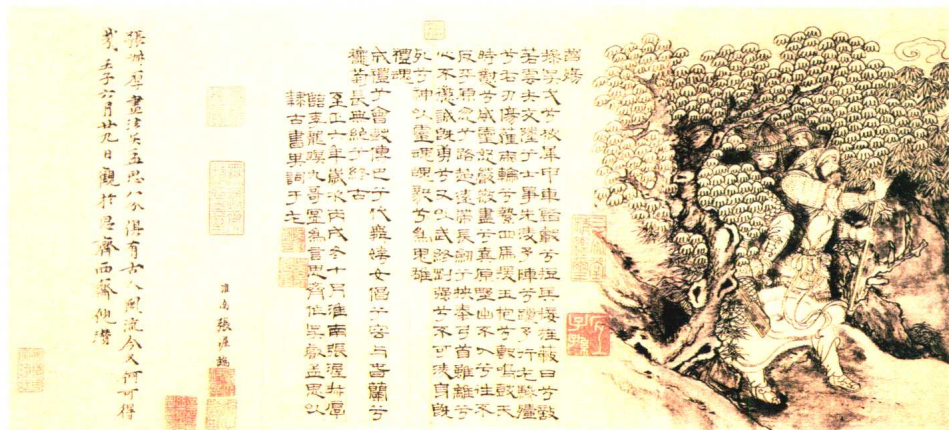 國殤
操吳戈兮被犀甲車錯轂兮短兵接旌蔽日兮敵
若雲矢交墜兮士爭先淩余陣兮躐余行左驂殪
兮右刃傷霾兩輪兮縶四馬援玉枹兮擊鳴鼓天
時懟兮威靈怒嚴殺盡兮棄原壄出不入兮往不
反平原忽兮路超遠帶長劍兮挾秦弓首雖離兮
心不懲誠既勇兮又以武終剛彊兮不可淩身既
死兮神以靈魂魄毅兮為鬼雄
禮魂
成禮兮會鼓傳芭兮代舞姱女倡兮容與春蘭兮
龝菊長無絕兮終古
至正六年歲次丙戌冬十月淮南張渥叔厚
臨李龍眠九哥圖為言思齊作吳睿孟思以
隸古書其詞于左
淮南張渥
張叔厚畫法吳孟思八分俱有古人風流今又何可得
哉壬子六月廿九日觀於思齊西齋倪瓚